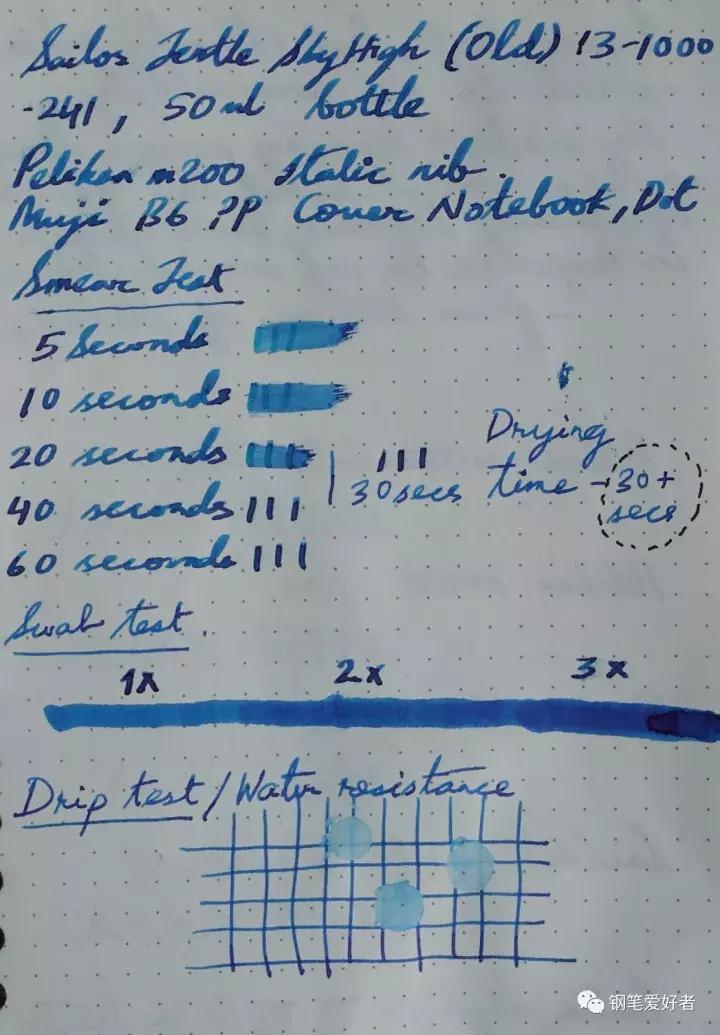 Sailor Jentle SkyHigh (Old) 13-1000
-241, 50ml bottle
Pelikan m200 Italic nib.
Muji B6 PP Cover Notebook, Dot
Smear Test
5 Seconds
10 seconds
20 seconds
30secs
40 seconds
60 seconds
Drying
time - 30+
secs
Swab test.
1x 2x 3x
Drip test/Water resistance
钢笔爱好者